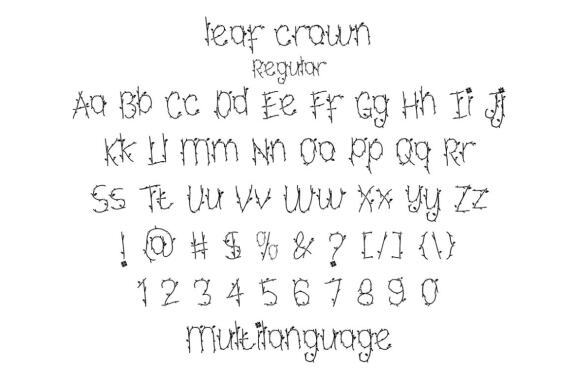 leaf crown
Regular
Aa Bb Cc Dd Ee Ff Gg Hh Ii Jj
Kk Ll Mm Nn Oo Pp Qq Rr
Ss Tt Uu Vv Ww Xx Yy Zz
! @ # $ % & ? [/] {\}
1 2 3 4 5 6 7 8 9 0
multilanguage